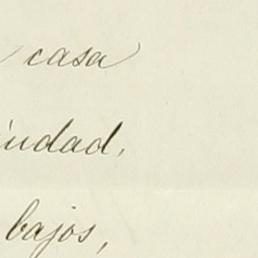 casa
iudad,
bajos,